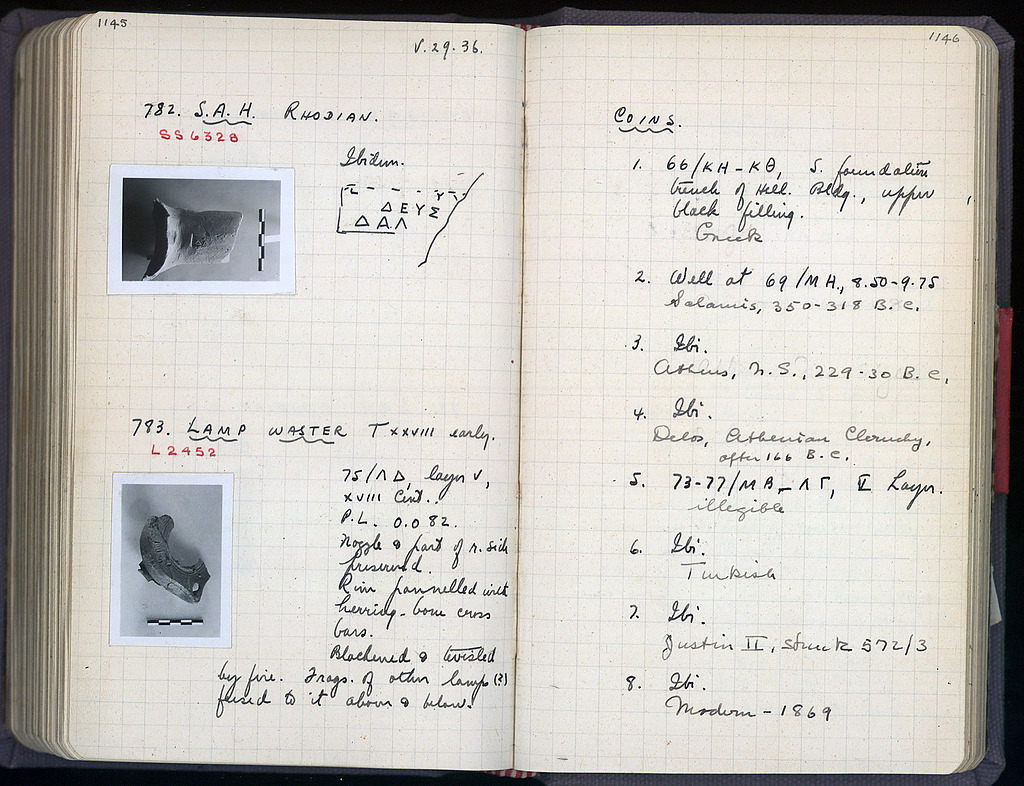 1145
V. 29. 36.
782. S.A.H. RHODIAN.
SS6328
Ibidem.
ΔΕΥΣ
ΔΑΛ
783. LAMP WASTER T XXVIII early.
L2452
75/ΛΔ, layer V,
XVIII Cent..
P.L. 0.082.
Nozzle & part of r. side
preserved.
Rim pannelled with
herring-bone cross
bars.
Blackened & twisted
by fire. Frags. of other lamps (?)
fused to it above & below.
1146
COINS.
1. 66/ΚΗ-ΚΘ, S. foundation
trench of Hell. Bldg., upper
black filling.
Greek
2. Well at 69/ΜΗ, 8.50-9.75
Salamis, 350-318 B.C.
3. Ibi.
Athens, N.S., 229-30 B.C.
4. Ibi.
Delos, Athenian Cleruchy,
after 166 B.C.
5. 73-77/ΜΒ-ΛΓ, II Layer.
illegible
6. Ibi.
Turkish
7. Ibi.
Justin II, struck 572/3
8. Ibi.
Modern - 1869